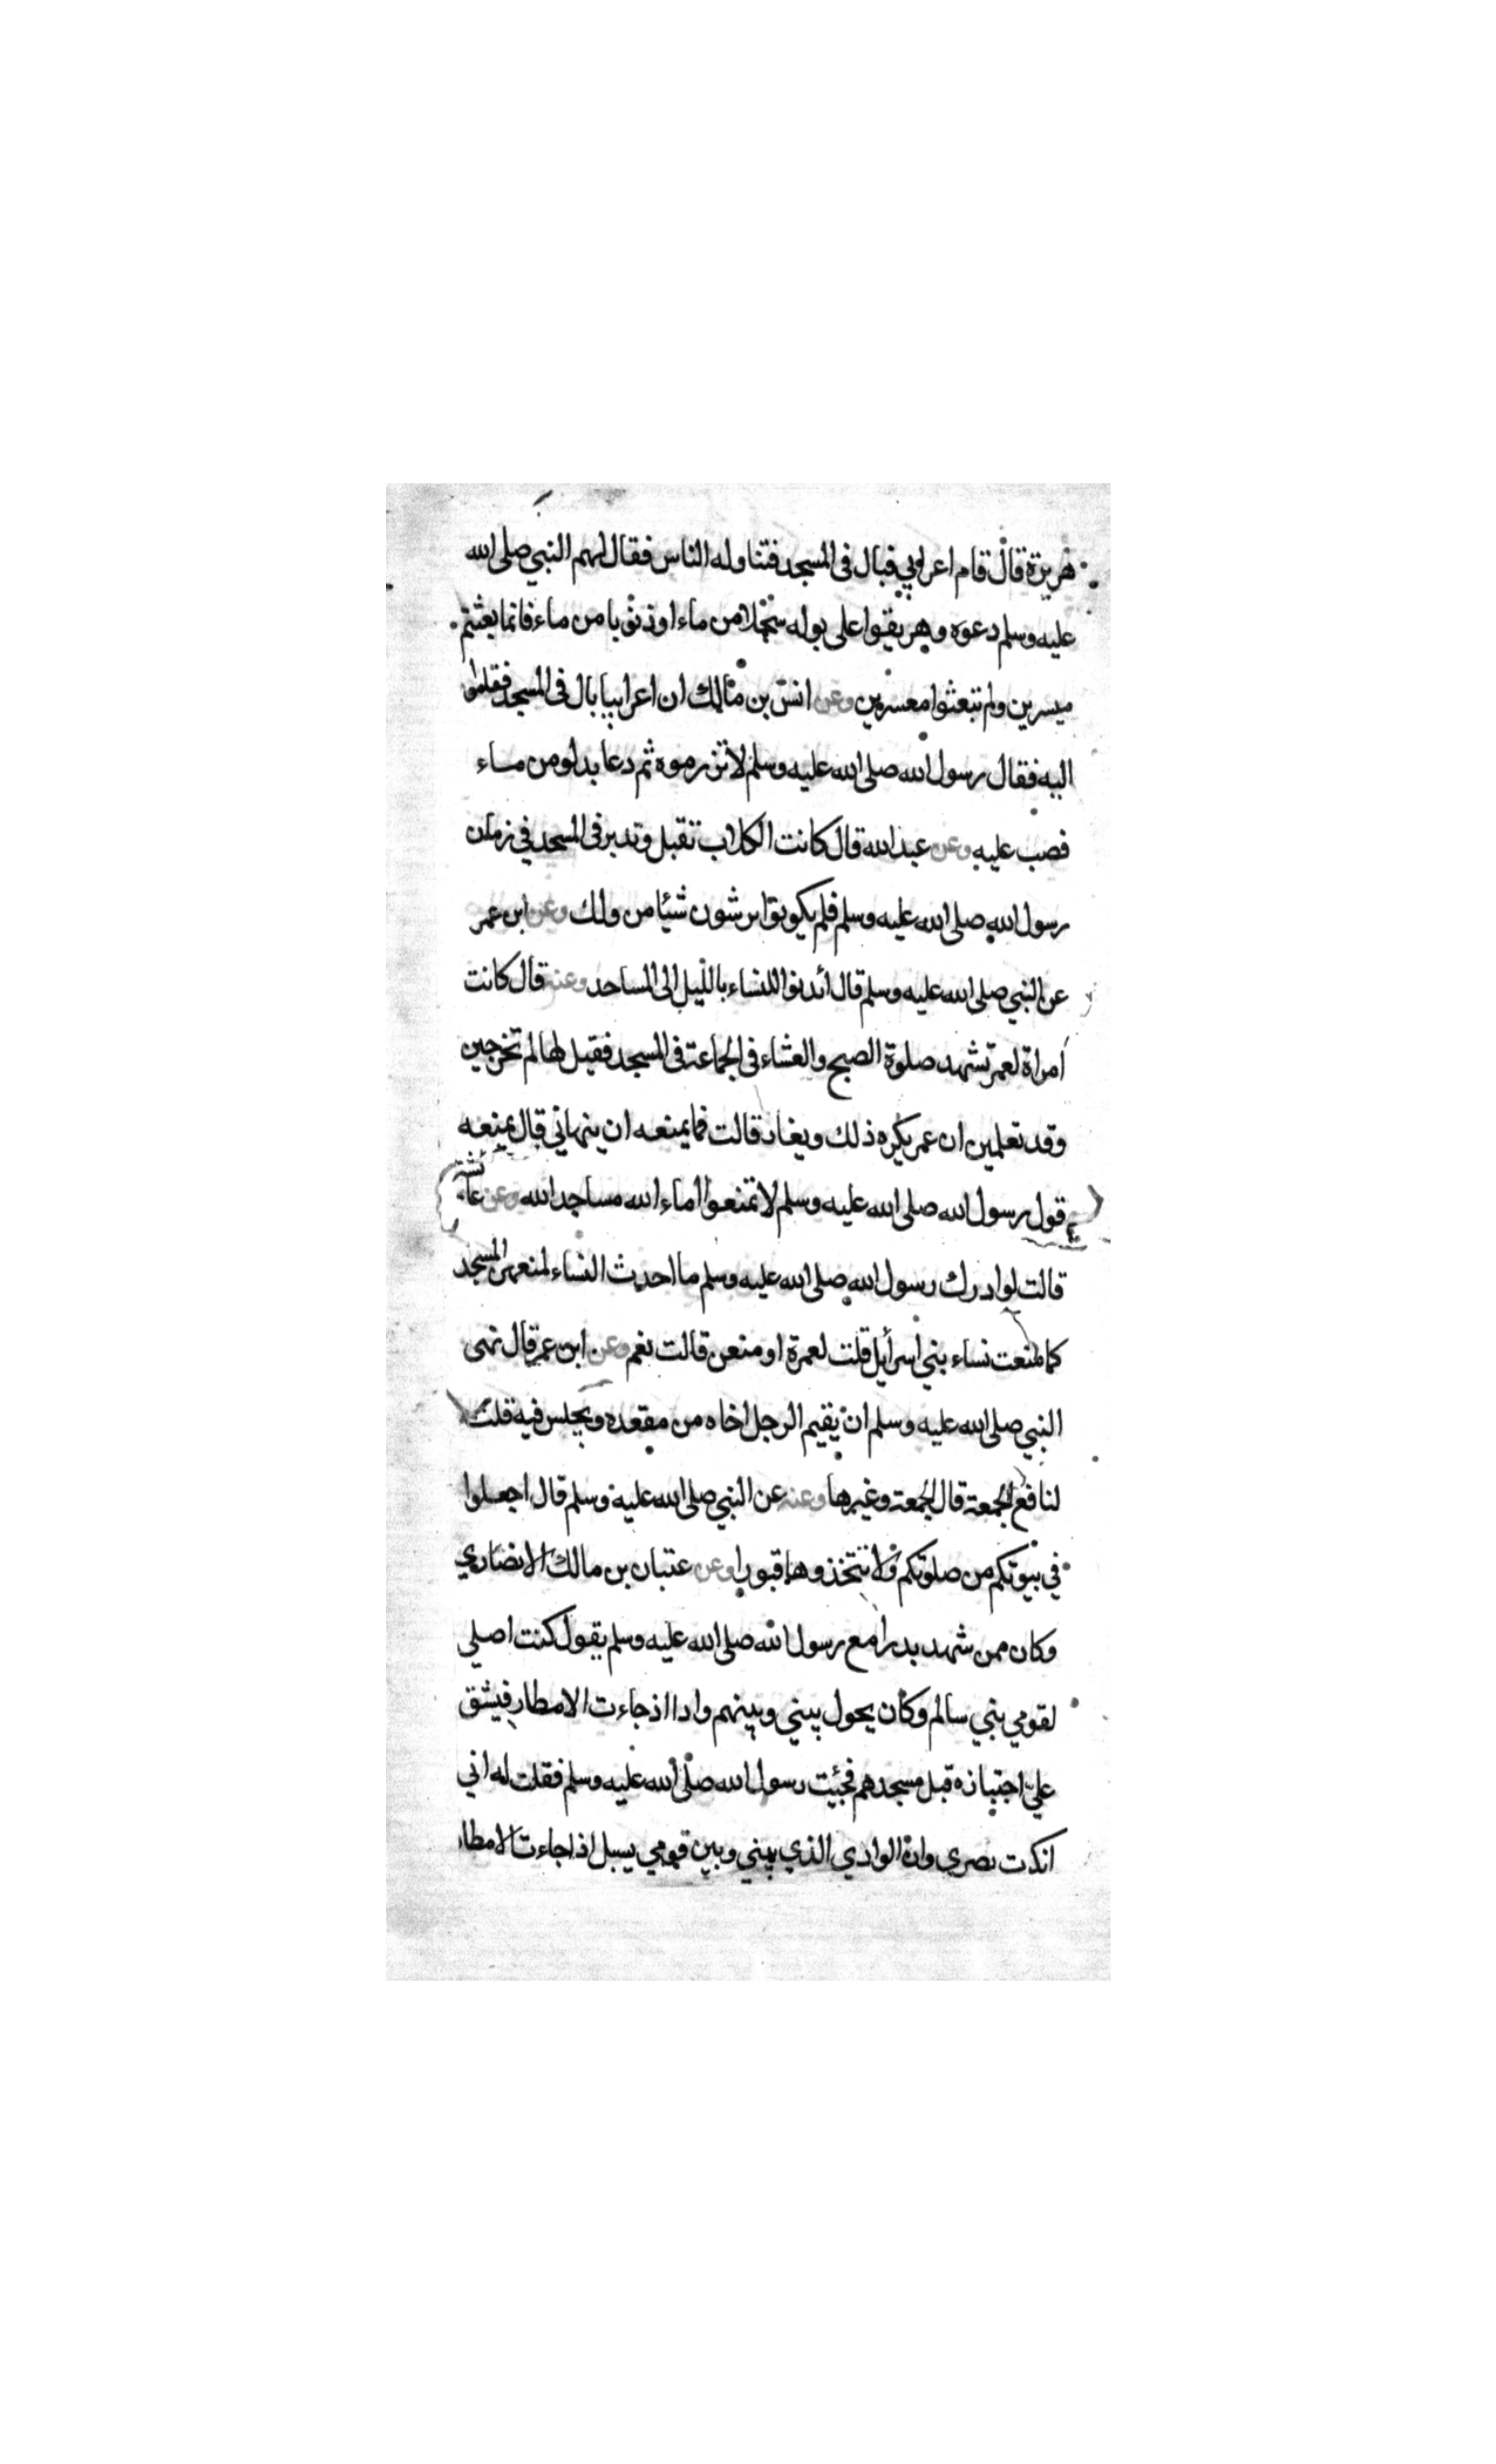 هريرة قال قام اعرابي فبال في المسجد فتناوله الناس فقال لهم النبي صلى الله
عليه وسلم دعوه وهريقوا على بوله سجلا من ماء او ذنوبا من ماء فانما بعثتم
ميسرين ولم تبعثوا معسرين وعن انس بن مالك ان اعرابيا بال في المسجد فقاموا
اليه فقال رسول الله صلى الله عليه وسلم لا تزرموه ثم دعا بدلو من ماء
فصب عليه وعن عبد الله قال كانت الكلاب تقبل وتدبر في المسجد في زمان
رسول الله صلى الله عليه وسلم فلم يكونوا يرشون شيئا من ذلك وعن ابن عمر
عن النبي صلى الله عليه وسلم قال ائذنوا للنساء بالليل الى المساجد وعنه قال كانت
امراة لعمر تشهد صلوة الصبح والعشاء في الجماعة في المسجد فقيل لها لم تخرجين
وقد تعلمين ان عمر يكره ذلك ويغار قالت فما يمنعه ان ينهاني قال يمنعه
قول رسول الله صلى الله عليه وسلم لا تمنعوا اماء الله مساجد الله وعن عائشة
قالت لو ادرك رسول الله صلى الله عليه وسلم ما احدث النساء لمنعهن المسجد
كما منعت نساء بني اسرائيل قلت لعمرة او منعن قالت نعم وعن ابن عمر قال نهى
النبي صلى الله عليه وسلم ان يقيم الرجل اخاه من مقعده ويجلس فيه قلت
لنافع الجمعة قال الجمعة وغيرها وعنه عن النبي صلى الله عليه وسلم قال اجعلوا
في بيوتكم من صلوتكم ولا تتخذوها قبورا وعن عتبان بن مالك الانصاري
وكان ممن شهد بدرا مع رسول الله صلى الله عليه وسلم يقول كنت اصلي
لقومي بني سالم وكان يحول بيني وبينهم واد اذا جاءت الامطار فيشق
علي اجتيازه قبل مسجدهم فجئيت رسول الله صلى الله عليه وسلم فقلت له اني
انكرت بصري وان الوادي الذي بيني وبين قومي يسيل اذا جاءت الامطار